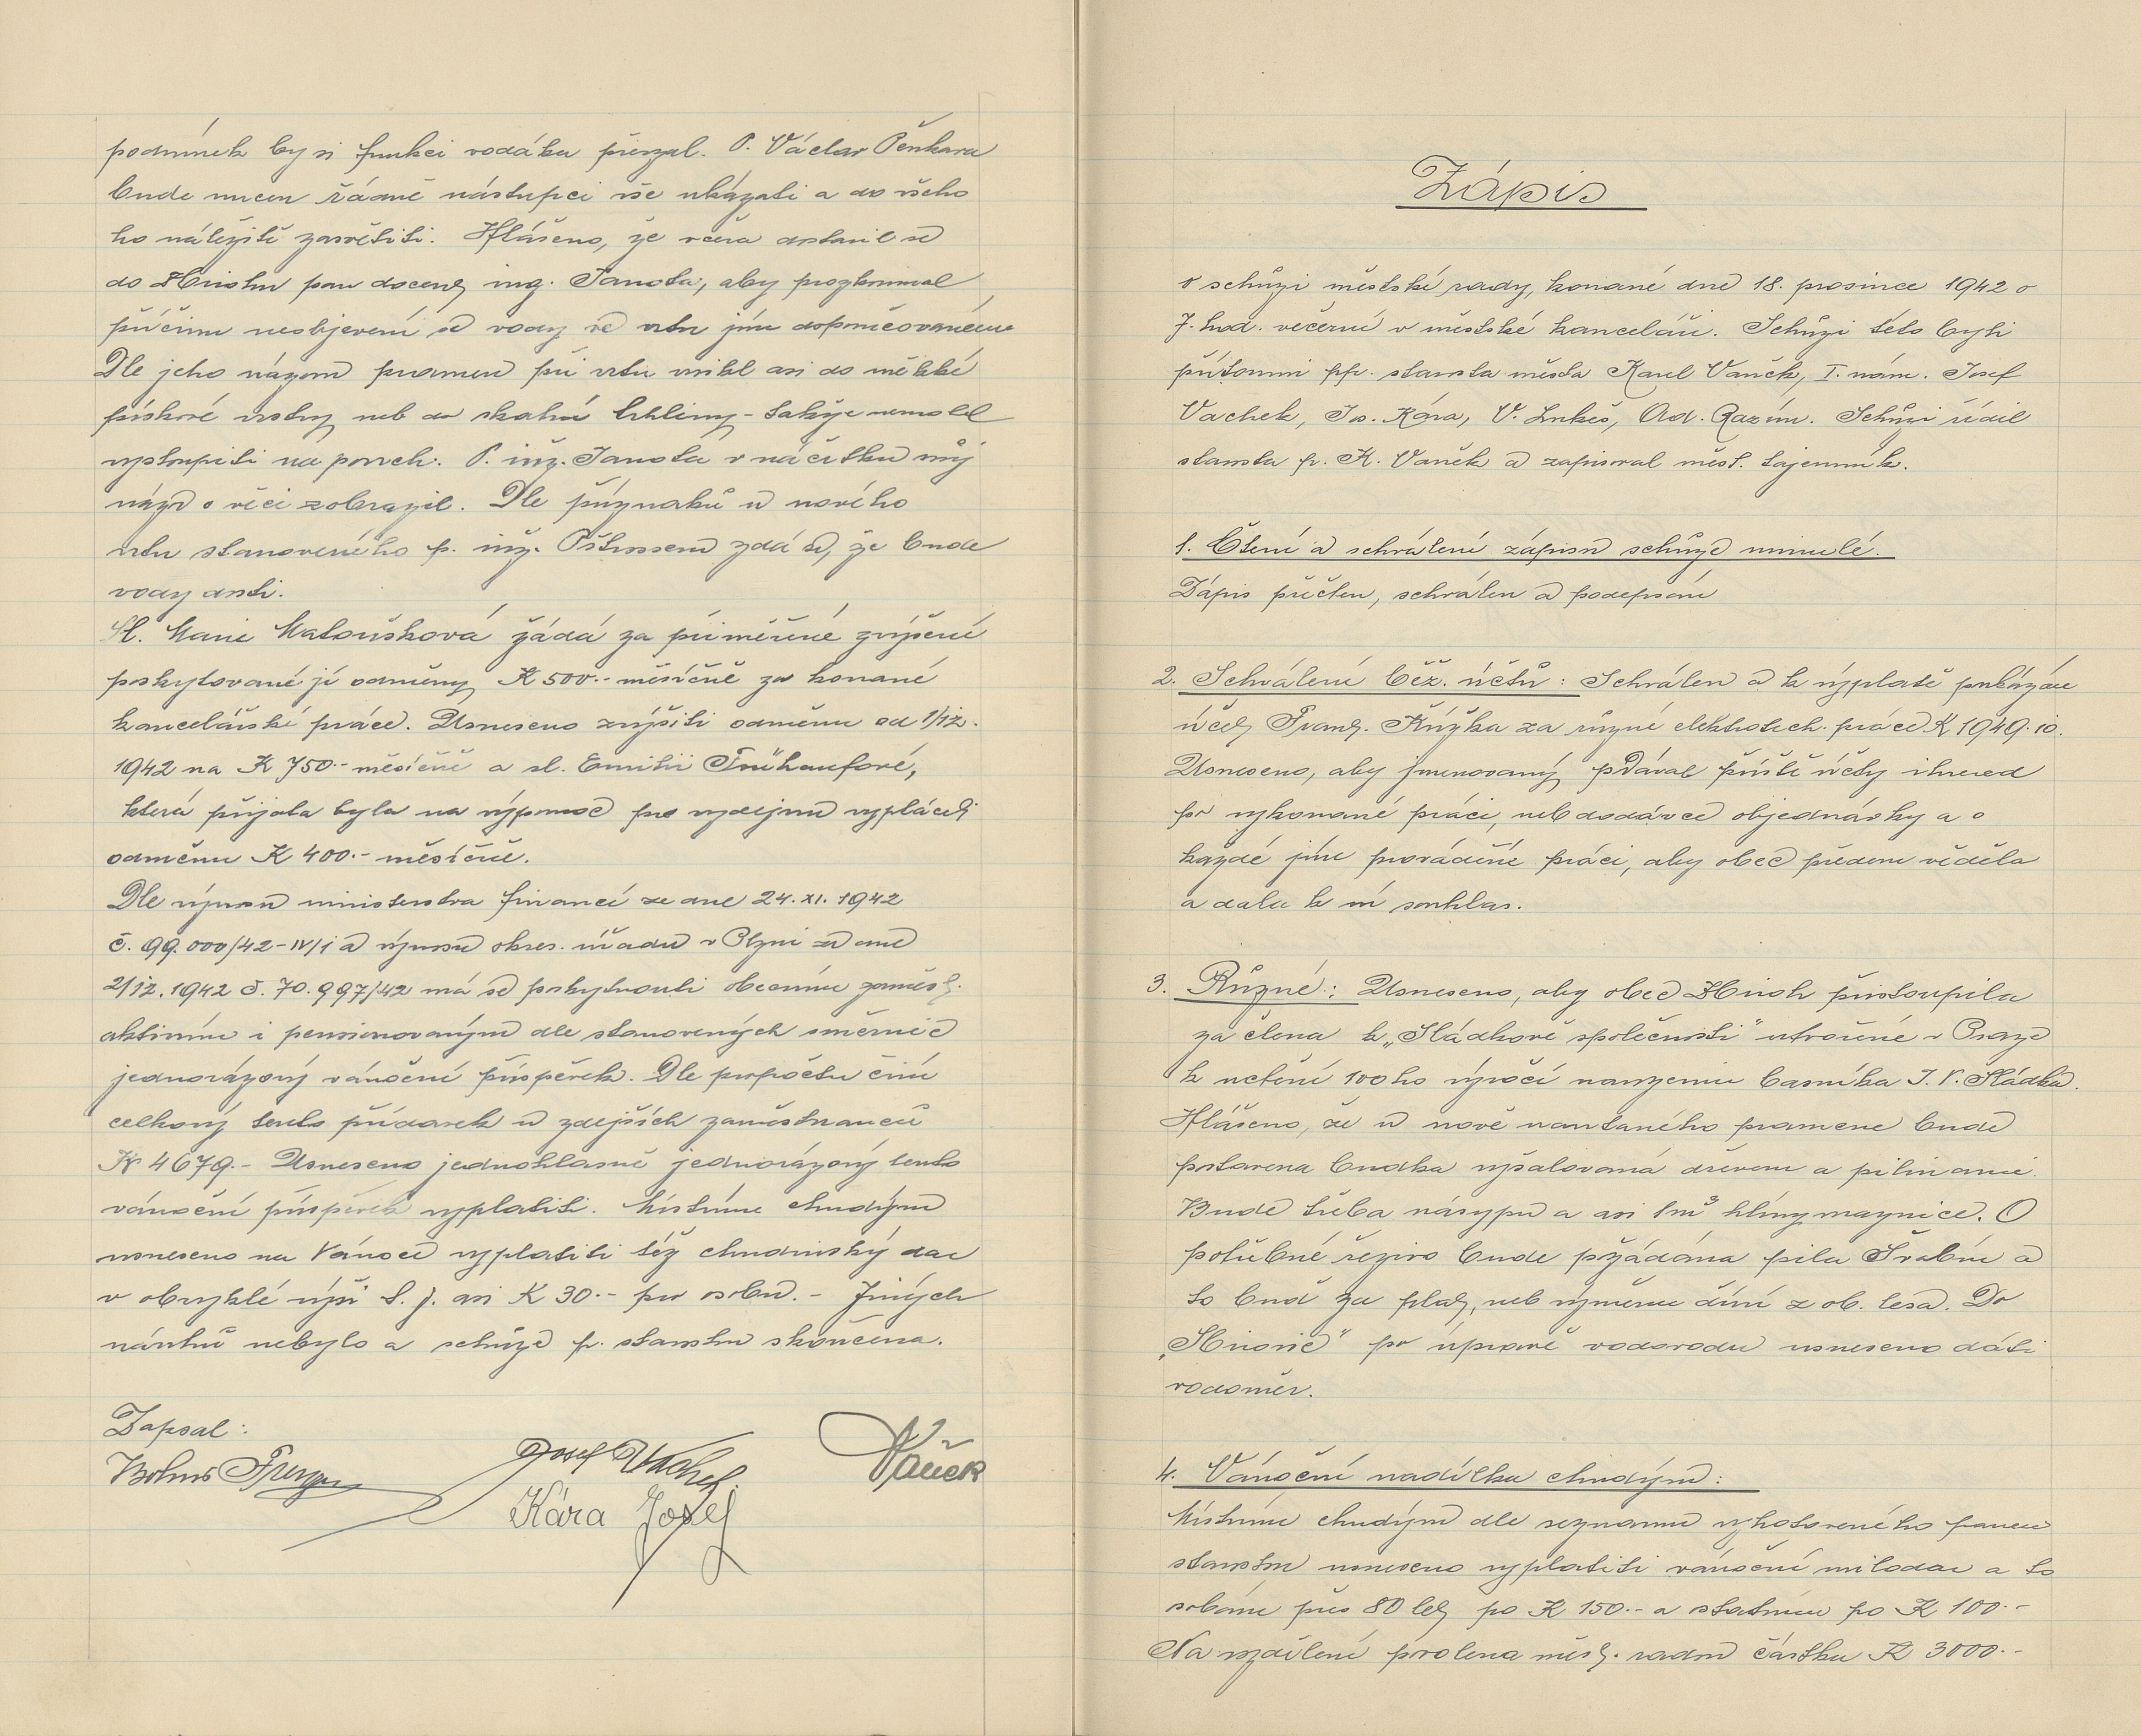 podmínek by si funkci vodáka převzal. P. Václav Pěnkava
bude nucen řádně nástupci vše ukázati a do všeho
ho náležitě zasvětiti. Hlášeno, že včera dostavil se
do Hiršhu pan docent ing. Janota, aby prozkoumal
příčinu neobjevení se vody ve vrtu jím doporučovaném
Dle jeho názoru pramen při vrtu vnikl asi do měkké
pískové vrstvy neb do skalní trhliny - takže nemohl
vystoupiti na povrch. P. inž. Janota v náčrtku svůj
názor o věci zobrazil. Dle příznaků u nového
vrtu stanoveného p. inž. zdá se, že bude
vody dosti.
Sl. Marie Matoušková žádá za přiměřené zvýšení
poskytované jí odměny K 500.- měsíčně za konané
kancelářské práce. Usneseno zvýšiti odměnu od 1/12.
1942 na K 750.- měsíčně a sl. Emilii Frühaufové,
která přijata byla na výpomoc pro výdejnu vypláceti
odměnu K 400.- měsíčně.
Dle výnosu ministerstva financí ze dne 24. XI. 1942
č. 99.000/42-IV/1 a výnosu okres. úřadu v Plzni ze dne
2/12. 1942 č. 70.997/42 má se poskytnouti obecním zaměst.
aktivním i pensionovaným dle stanovených směrnic
jednorázový vánoční příspěvek. Dle propočtu činí
celkový tento přídavek u zdejších zaměstnanců
K 4679.- Usneseno jednohlasně jednorázový tento
vánoční příspěvek vyplatiti. Místním chudým
usneseno na Vánoce vyplatiti též chudinský dar
v obvyklé výši t. j. asi K 30.- pro osobu. - Jiných
návrhů nebylo a schůze p. starostou skončena.
Zapsal:
Josef Vachek
Vaněk
Kára Josef
Zápis
o schůzi městské rady, konané dne 18. prosince 1942 o
7. hod. večerní v městské kanceláři. Schůzi této byli
přítomni pp. starosta města Karel Vaněk, I. nám. Josef
Vachek, Jos. Kára, V. Lukeš, Ad. Razím. Schůzi řídil
starosta p. K. Vaněk a zapisoval měst. tajemník.
1. Čtení a schválení zápisu schůze minulé.
Zápis přečten, schválen a podepsán
2. Schválení běž. účtů: Schválen a k výplatě poukázán
účet Frant. Růžka za různé elektrotech. práce K 1949.10.
Usneseno, aby jmenovaný podával příště účty ihned
po vykonané práci, neb dodávce objednávky a o
každé jím prováděné práci, aby obec předem věděla
a dala k ní souhlas.
3. Různé: Usneseno, aby obec přistoupila
za člena k „Sládkově společnosti" utvořené v Praze
k uctění 100ho výročí narozenin básníka J. V. Sládka.
Hlášeno, že u nově navrtaného pramene bude
postavena budka vyšalovaná dřevem a pilinami.
Bude třeba násypu a asi 1m³ hlíny maznice. O
potřebné řezivo bude požádána pila Švabín a
to buď za plat, neb výměnu dříví z ob. lesa. Do
po úpravě vodovodu usneseno dáti
vodoměr.
4. Vánoční nadílka chudým:
Místním chudým dle seznamu vyhotoveného panem
starostou usneseno vyplatiti vánoční milodar a to
osobám přes 80 let po K 150.- a ostatním po K 100.-
Na rozdílení povolena měst. radou částka K 3000.-